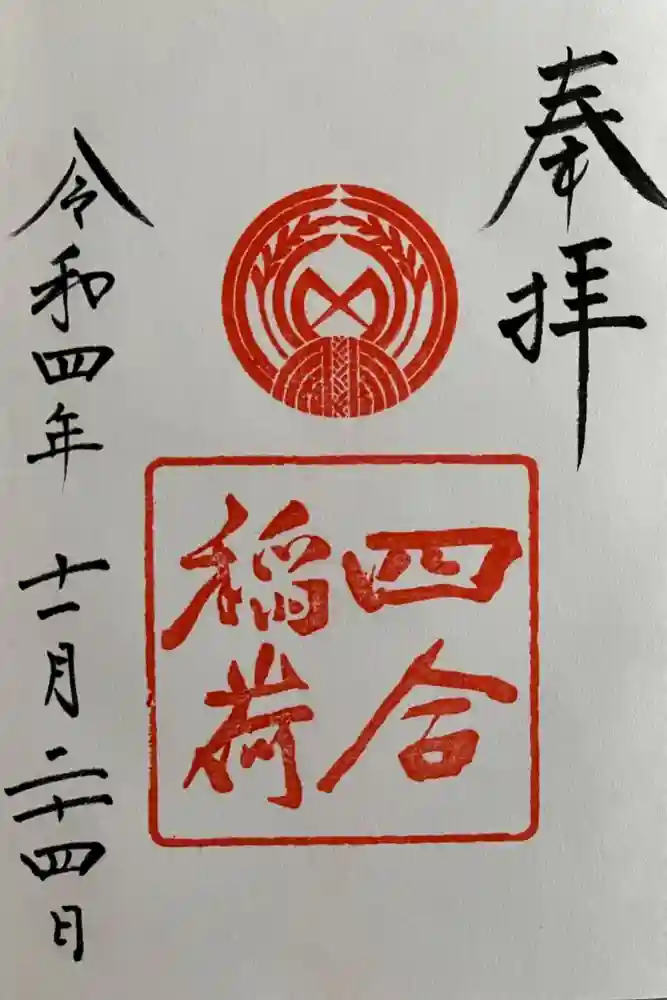 奉拝
四合
稲荷
令和四年 十一月二十四日